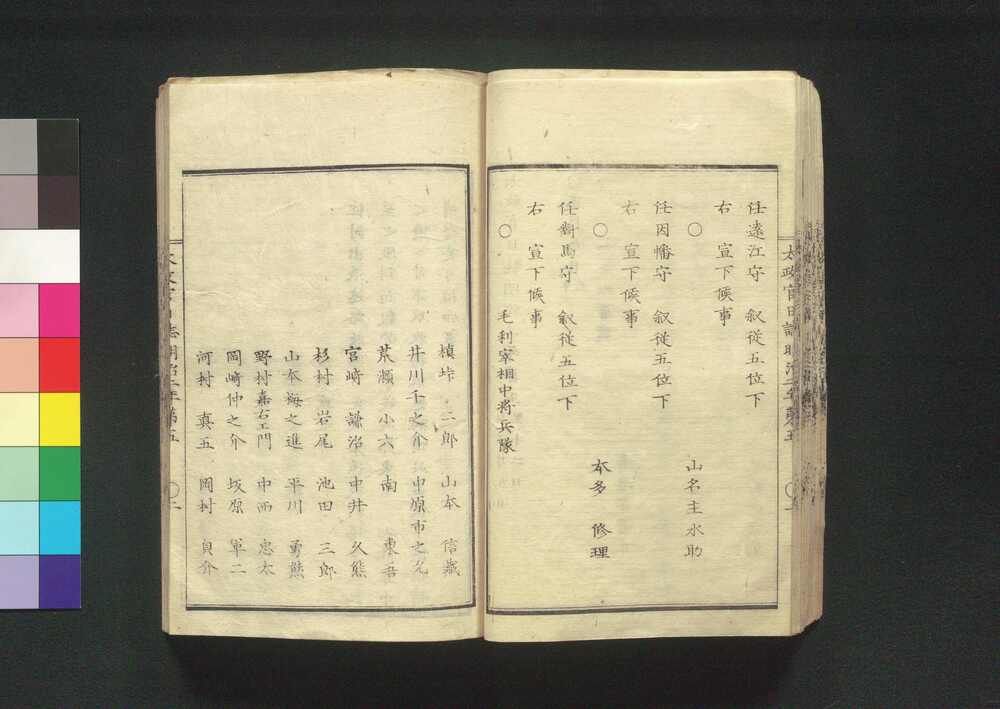 太政官日誌明治二年第五
任遠江守　叙従五位下
右　宣下候事
〇　山名主水助
任因幡守　叙従五位下
右　宣下候事
〇　本多　修理
任對馬守　叙従五位下
右　宣下候事
〇　毛利宰相中将兵隊
槙峠　二郎　山本　信蔵
井川千之介　中原市之允
荒瀬　小六　南　東吾
宮﨑　謙治　中井　久熊
杉村　岩尾　池田　三郎
山本梅之進　平川　勇熊
野村嘉右エ門　中西　忠太
岡﨑仲之介　坂原　軍二
河村　真五　岡村　貞介
太政官日誌明治二年第五　〇二